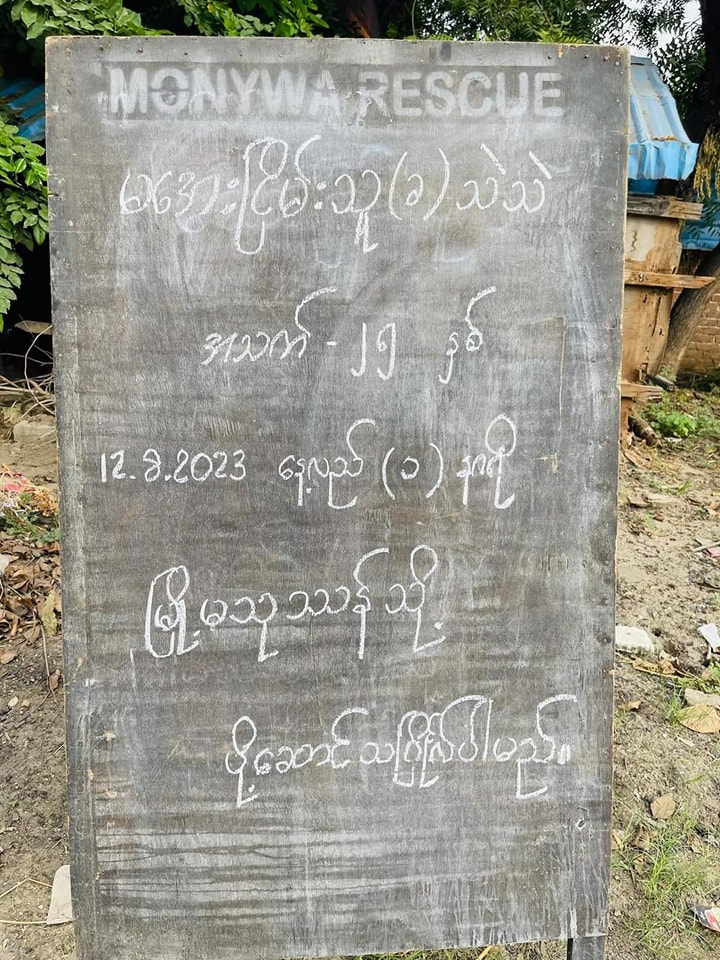 MONYWA RESCUE
မအေးငြိမ်းသူ(ခ)သဲသဲ
အသက် - ၂၅ နှစ်
12.8.2023 နေ့လည် (၁) နာရီ
မြို့မသုဿာန်သို့
ပို့ဆောင်သင်္ဂြိုဟ်ပါမည်။